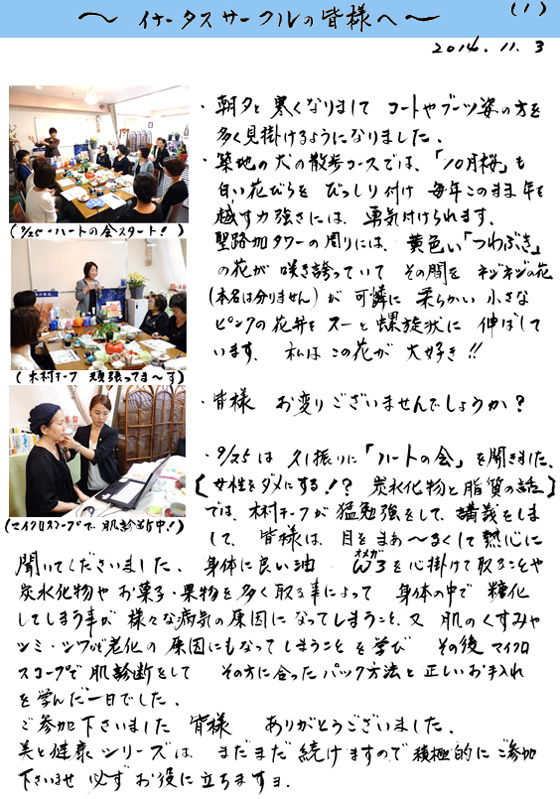 〜 イナータスサークルの皆様へ 〜
(1)
2014.11.3
・朝夕と寒くなりまして コートやブーツ姿の方を
多く見掛けるようになりました.
・築地の犬の散歩コースでは、「10月桜」も
白い花びらを びっしり付け 毎年このまま年を
越す力強さには、勇気付けられます.
聖路加タワーの周りには、黄色い「つわぶき」
の花が 咲き誇っていて その間を ネジネジの花
(本名は分りません)が 可憐に 柔らかい 小さな
ピンクの花弁を スーと螺旋状に 伸ばして
います. 私は この花が 大好き!!
(9/25・ハートの会スタート!)
(木村チーフ 頑張ってま〜す)
(マイクロスコープで 肌診断中!)
・皆様 お変りございませんでしょうか?
・9/25は 久し振りに「ハートの会」を開きました、
【女性をダメにする!? 炭水化物と脂質の話】
では、木村チーフが 猛勉強をして、講義をしま
して、皆様は、目をまぁ〜るくして熱心に
聞いてくださいました. 身体に良い油 ω3を心掛けて取ることや
オメガ
炭水化物や お菓子・果物を多く取る事によって 身体の中で 糖化
してしまう事が 様々な病気の原因になってしまうこと. 又 肌のくすみや
シミ・シワなど老化の 原因にもなってしまうことを学び その後 マイクロ
スコープで 肌診断をして その方に合ったパック方法と正しいお手入れ
を学んだ一日でした.
ご参加下さいました 皆様 ありがとうございました.
美と健康シリーズは まだまだ 続けますので積極的にご参加
下さいませ 必ず お役に立ちますヨ.